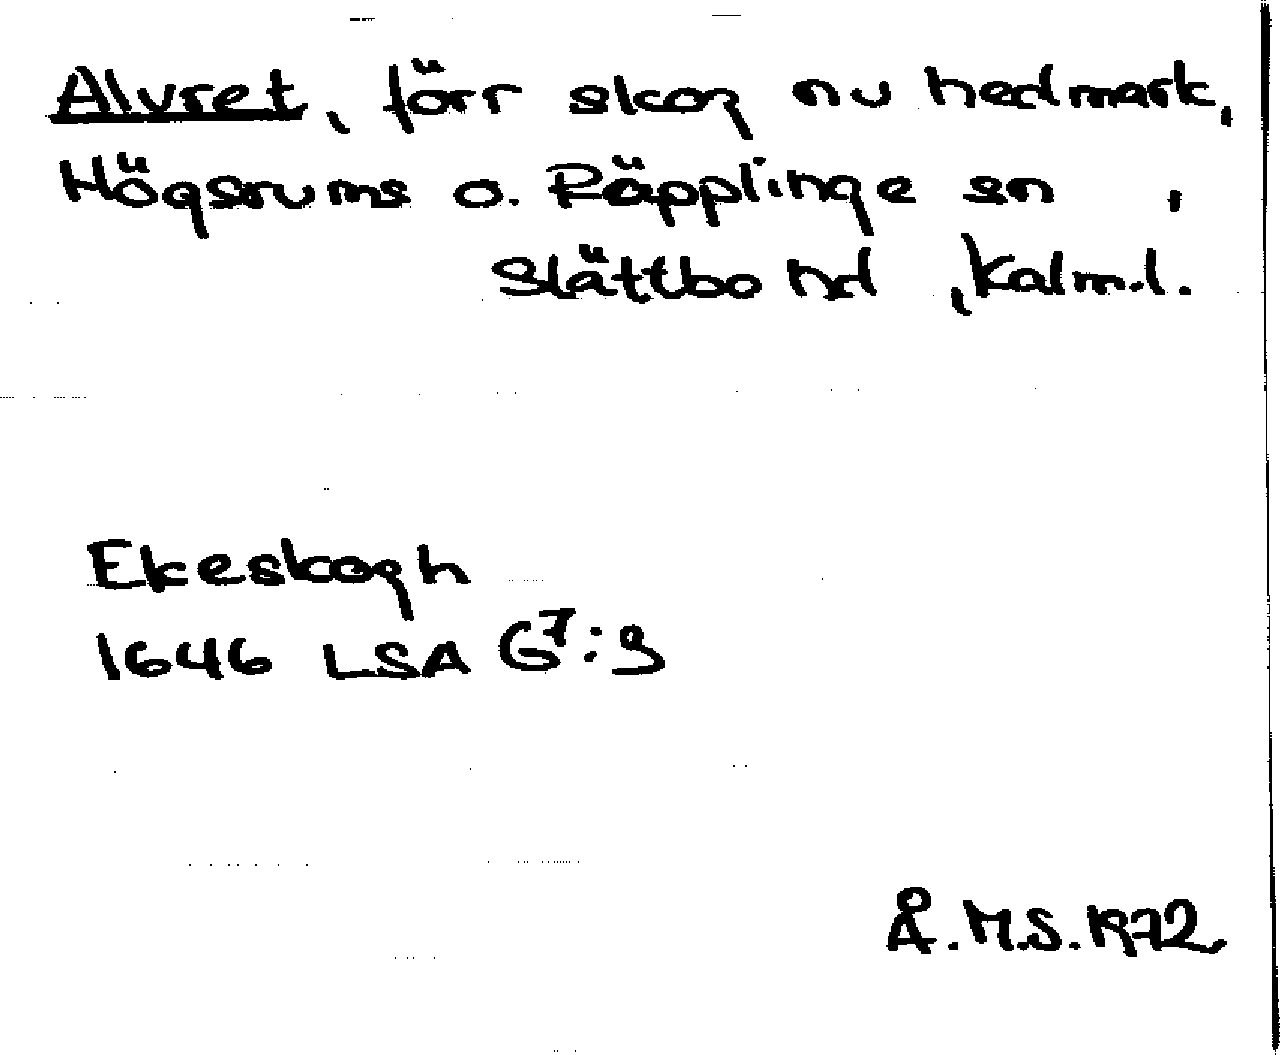 Alvret, förr skog nu hedmark,
Högsrums o. Räpplinge sn ,
Slättbo hd , Kalm.l.
Ekeskogh
1646 LSA G7:9
Å.M.S.1972